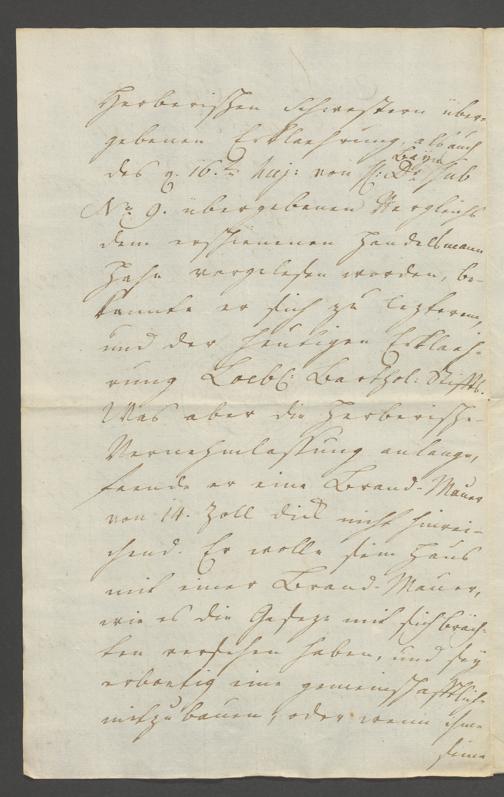 Herberischen Schwestern über-
gebenen Erklaehrung, als auch
des q. 16.ten Maj: von H: Dr. Beyer sub
No. 9. übergebenen Vergleichs
dem erschienenen Handelsmann
Hahn vorgelesen worden, be-
kannte er sich zu lezterem,
und der heutigen Erklaeh-
rung Loebl: Barthol: Stiffts.
Was aber die Herberische
Vernehmlassung anlange,
feende er eine Brand-Mauer
von 14. Zoll dick nicht hinrei-
chend. Er wolle sein Haus
mit einer Brand-Mauer,
wie es die Geseze mit sich bräch-
ten versehen haben, und sey
erboetig eine gemeinschafftlich
mitzubauen, oder wenn ihme
seine